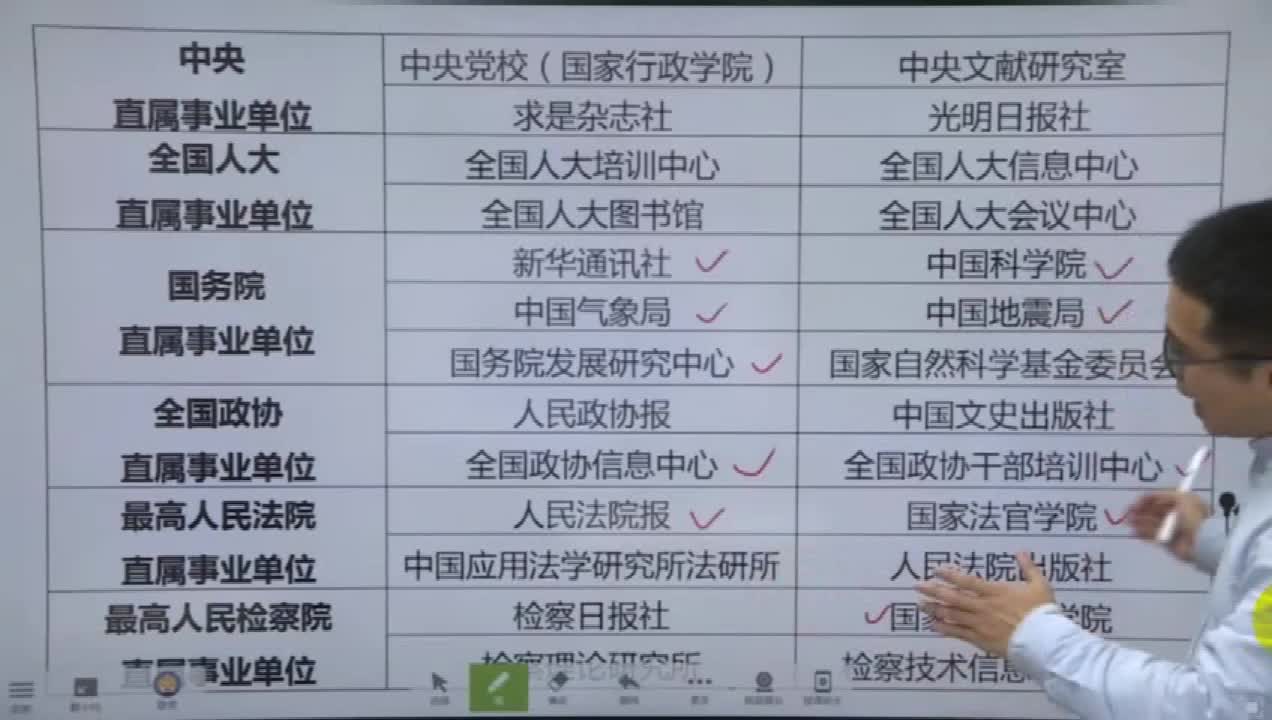 中央 中央党校（国家行政学院） 中央文献研究室
直属事业单位 求是杂志社 光明日报社
全国人大 全国人大培训中心 全国人大信息中心
直属事业单位 全国人大图书馆 全国人大会议中心
新华通讯社 中国科学院
国务院 中国气象局 中国地震局
直属事业单位 国务院发展研究中心 国家自然科学基金委员会
全国政协 人民政协报 中国文史出版社
直属事业单位 全国政协信息中心 全国政协干部培训中心
最高人民法院 人民法院报 国家法官学院
直属事业单位 中国应用法学研究所法研所 人民法院出版社
最高人民检察院 检察日报社 国家 学院
直属事业单位 检察理论研究所 检察技术信息